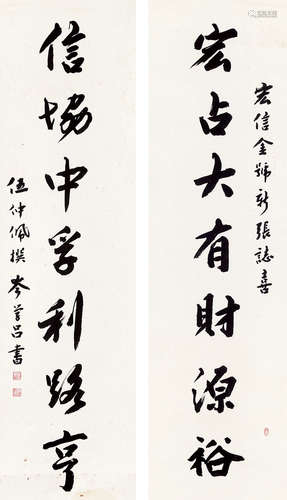 宏信金號新張誌喜
宏占大有財源裕
信協中孚利路亨
伍仲佩撰 岑學呂書